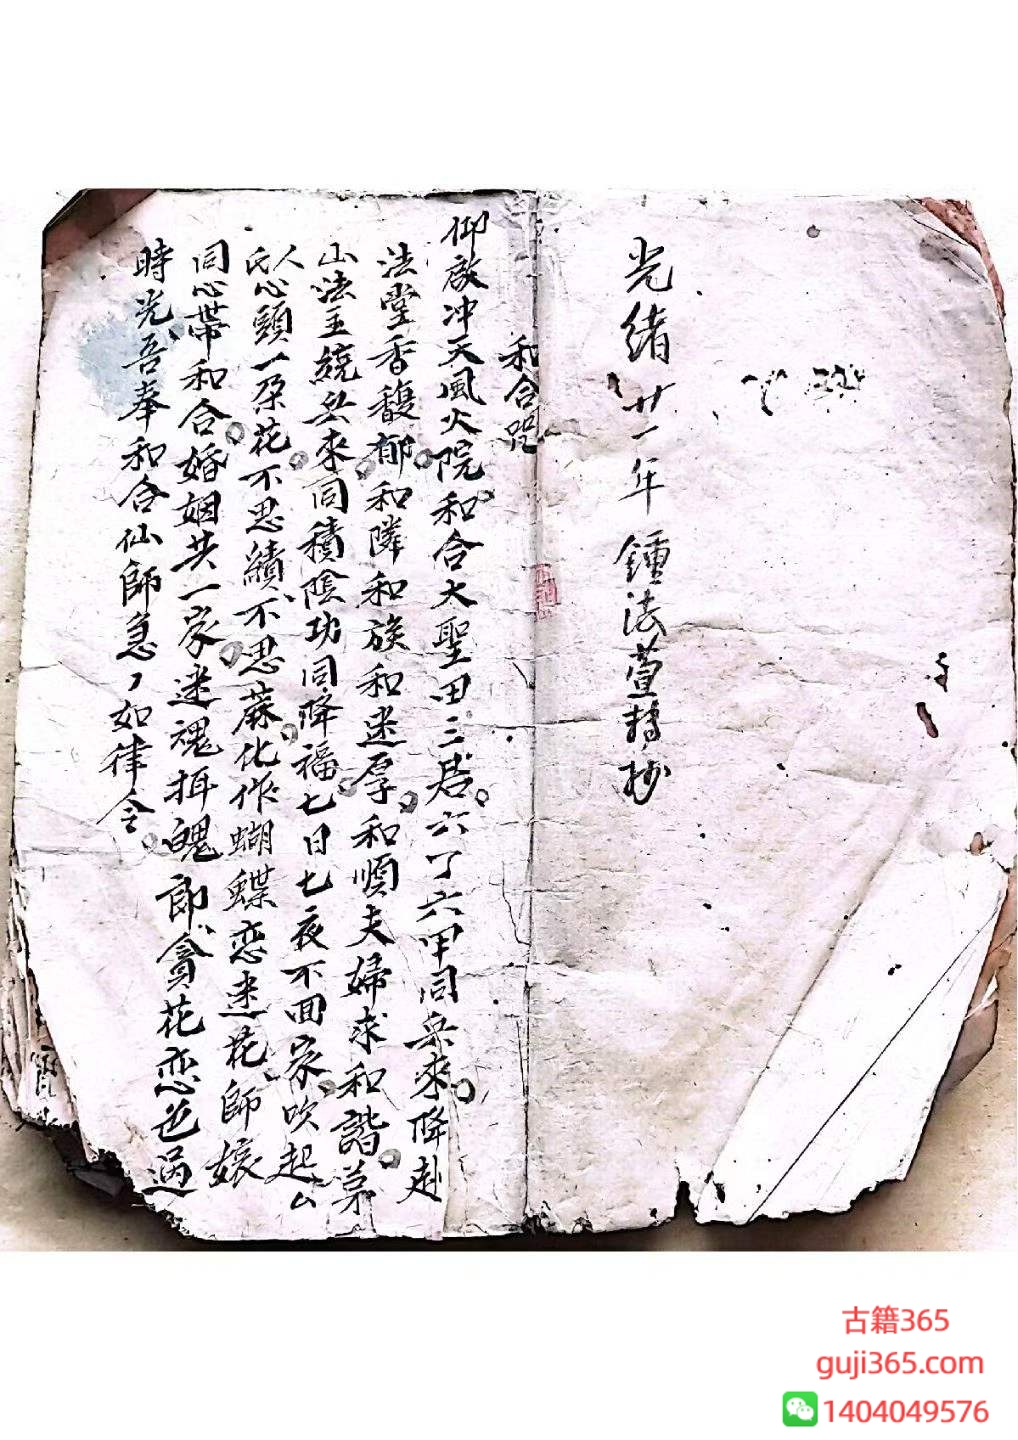 光緒廿一年鍾法萱抄
和合咒
仰啟冲天風火院和合大聖田三君六丁六甲同兵來降赴
法堂香馥郁和隣和族和迷厚和順夫婦求和諧茅
山法主統兵來同積陰功同降福七日七夜不回家吹起
人氏心頭一朵花不思績不思蔴化作蝴蝶恋迷花師娘
同心帶和合婚姻共一家迷魂魄郎貪花恋色過
時光吾奉和合仙師急〃如律令
古籍365
guji365.com
1404049576